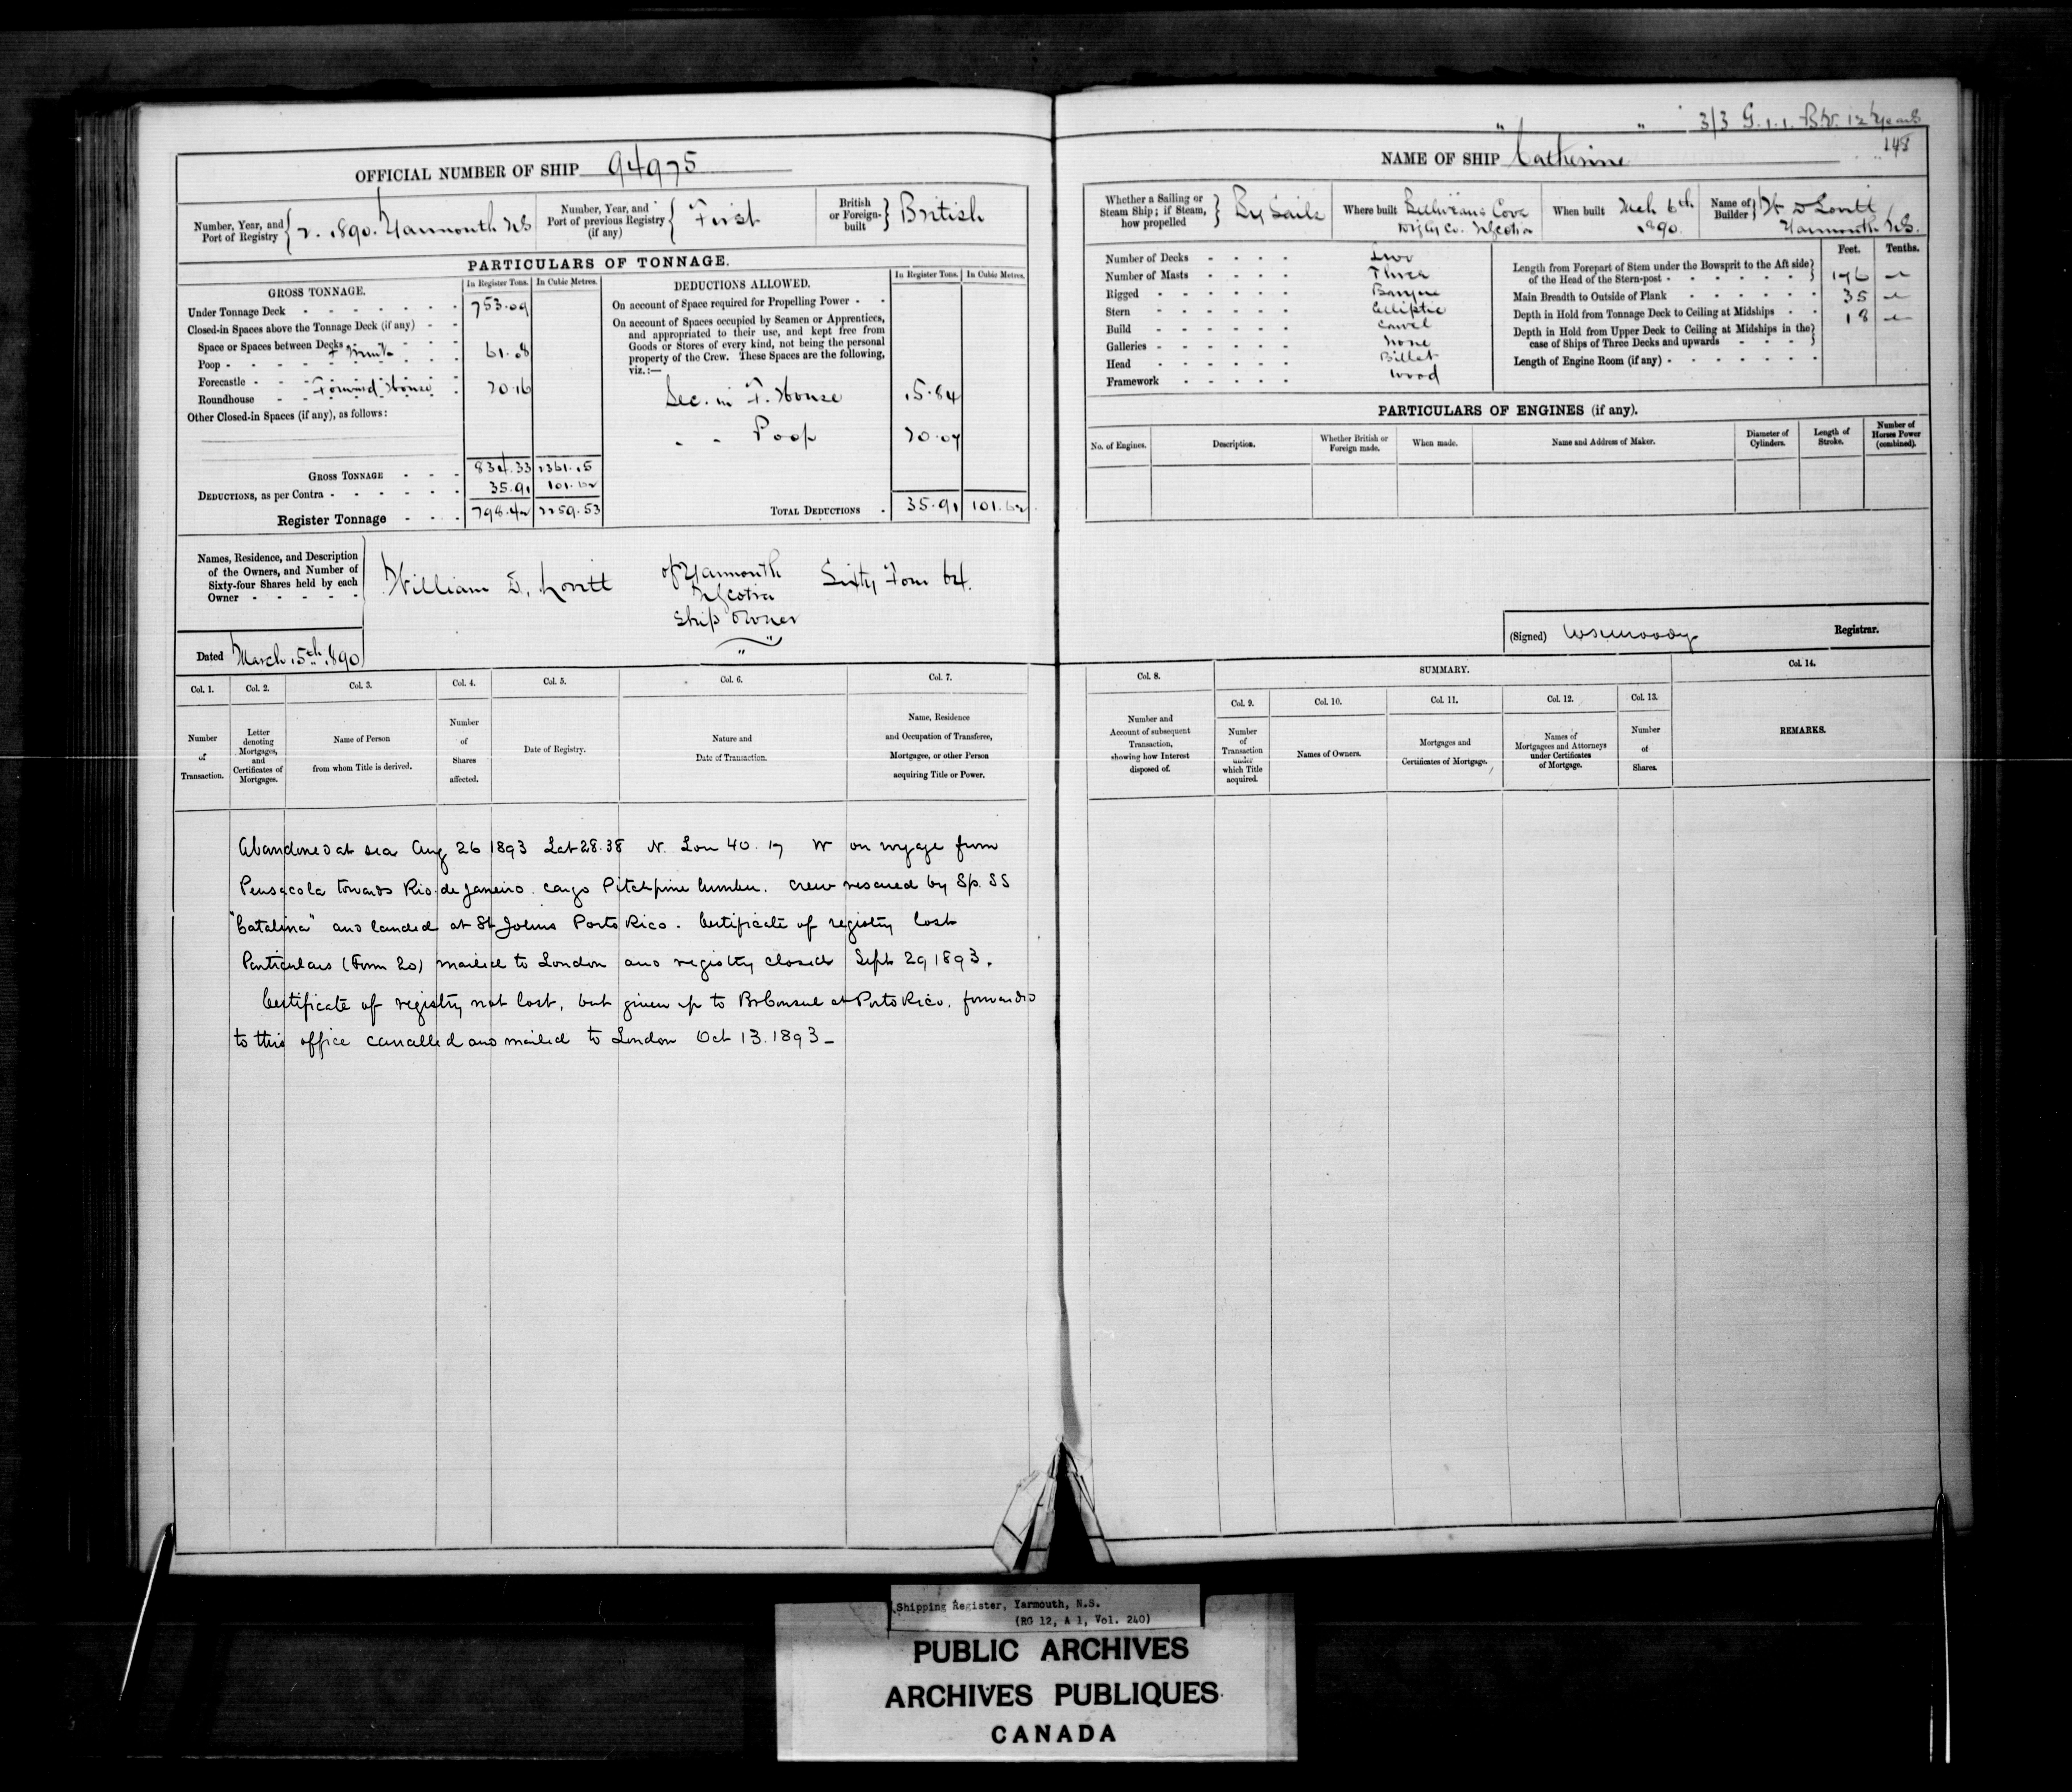 3/3 G.1.1. Br. 12 Years
148
OFFICIAL NUMBER OF SHIP 94975
NAME OF SHIP "Catherine"
Number, Year, and Port of Registry { 2. 1890. Yarmouth NS
Number, Year, and Port of previous Registry (if any) { First
British or Foreign-built } British
PARTICULARS OF TONNAGE.
GROSS TONNAGE.
In Register Tons. In Cubic Metres.
Under Tonnage Deck 753.09
Closed-in Spaces above the Tonnage Deck (if any)
Space or Spaces between Decks
Poop 61.08
Forecastle
Roundhouse Forward House 20.16
Other Closed-in Spaces (if any), as follows:
GROSS TONNAGE 834.33 2361.15
DEDUCTIONS, as per Contra 35.91 101.62
Register Tonnage 798.42 2259.53
DEDUCTIONS ALLOWED.
In Register Tons. In Cubic Metres.
On account of Space required for Propelling Power
On account of Spaces occupied by Seamen or Apprentices,
and appropriated to their use, and kept free from
Goods or Stores of every kind, not being the personal
property of the Crew. These Spaces are the following,
viz.:—
Sec. in F. House 15.84
" " Poop 20.07
TOTAL DEDUCTIONS 35.91 101.62
Names, Residence, and Description
of the Owners, and Number of
Sixty-four Shares held by each
Owner
William D. Lovitt of Yarmouth Sixty Four 64.
NScotia
Ship Owner
Dated March 15th 1890
Col. 1. Col. 2. Col. 3. Col. 4. Col. 5. Col. 6. Col. 7.
Number of Transaction.
Letter denoting Mortgages, and Certificates of Mortgages.
Name of Person from whom Title is derived.
Number of Shares affected.
Date of Registry.
Nature and Date of Transaction.
Name, Residence and Occupation of Transferee, Mortgagee, or other Person acquiring Title or Power.
Abandoned at sea Aug 26 1893 Lat 28.38 N. Lon 40.17 W on voyage from
Pensacola towards Rio de Janeiro. cargo Pitchpine lumber. crew rescued by Sp. SS
"Catalina" and landed at St Johns Porto Rico. Certificate of registry lost
Particulars (Form 20) mailed to London and registry closed Sept 29 1893.
Certificate of registry not lost, but given up to Br Consul at Porto Rico. forwarded
to this office cancelled and mailed to London Oct 13. 1893 -
Whether a Sailing or Steam Ship; if Steam, how propelled } By Sails
Where built Belliveaus Cove
Digby Co. NScotia
When built Mch 6th
1890.
Name of Builder } W D Lovitt
Yarmouth NS.
Number of Decks Two
Number of Masts Three
Rigged Barque
Stern Elliptic
Build Carvel
Galleries None
Head Billet
Framework Wood
Feet. Tenths.
Length from Forepart of Stem under the Bowsprit to the Aft side
of the Head of the Stern-post 176
Main Breadth to Outside of Plank 35
Depth in Hold from Tonnage Deck to Ceiling at Midships 18
Depth in Hold from Upper Deck to Ceiling at Midships in the
case of Ships of Three Decks and upwards
Length of Engine Room (if any)
PARTICULARS OF ENGINES (if any).
No. of Engines.
Description.
Whether British or Foreign made.
When made.
Name and Address of Maker.
Diameter of Cylinders.
Length of Stroke.
Number of Horses Power (combined).
(Signed) WSMoody Registrar.
Col. 8. SUMMARY. Col. 14.
Col. 9. Col. 10. Col. 11. Col. 12. Col. 13.
Number and Account of subsequent Transaction, showing how Interest disposed of.
Number of Transaction under which Title acquired.
Names of Owners.
Mortgages and Certificates of Mortgage.
Names of Mortgagees and Attorneys under Certificates of Mortgage.
Number of Shares.
REMARKS.
Shipping Register, Yarmouth, N.S.
(RG 12, A 1, Vol. 240)
PUBLIC ARCHIVES
ARCHIVES PUBLIQUES
CANADA